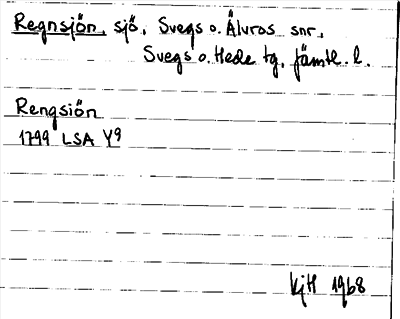 Regnsjön, sjö, Svegs o. Älvros snr,
Svegs o. Hede tg, Jämtl. l.
Rengsiön
1799 LSA Y9
KjH 1968